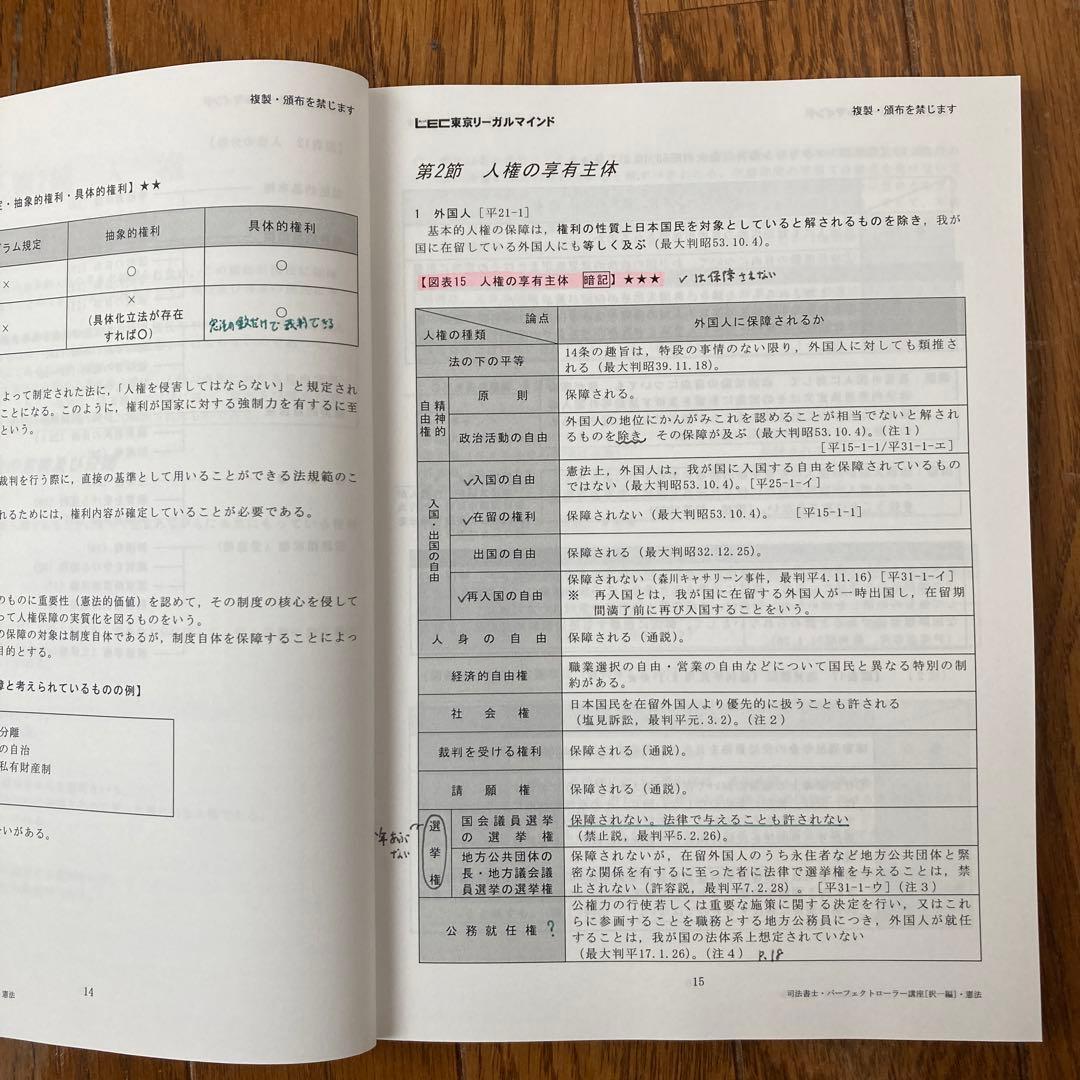 複製・頒布を禁じます
・抽象的権利・具体的権利】★★
ラム規定
抽象的権利
具体的権利
×
○
○
×
×
(具体化立法が存在
すれば○)
○
よって制定された法に，「人権を侵害してはならない」と規定され
ことになる。このように，権利が国家に対する強制力を有するに至
という。
裁判を行う際に，直接の基準として用いることができる法規範のこ
れるためには，権利内容が確定していることが必要である。
のものに重要性（憲法的価値）を認めて，その制度の核心を侵して
って人権保障の実質化を図るものをいう。
の保障の対象は制度自体であるが，制度自体を保障することによっ
目的とする。
障と考えられているものの例】
分離
の自治
私有財産制
いがある。
14
・憲法
LEC東京リーガルマインド
複製・頒布を禁じます
第2節 人権の享有主体
1 外国人［平21-1］
基本的人権の保障は，権利の性質上日本国民を対象としていると解されるものを除き，我が
国に在留している外国人にも等しく及ぶ（最大判昭53.10.4）。
【図表15 人権の享有主体 暗記】★★★ ✓は保障されない
論点
人権の種類
外国人に保障されるか
法の下の平等
14条の趣旨は，特段の事情のない限り，外国人に対しても類推さ
れる（最大判昭39.11.18）。
精神的自由権
原則
保障される。
政治活動の自由
外国人の地位にかんがみこれを認めることが相当でないと解され
るものを除き，その保障が及ぶ（最大判昭53.10.4）。（注1）
［平15-1-1/平31-1-エ］
入国・出国の自由
✓入国の自由
憲法上，外国人は，我が国に入国する自由を保障されているもの
ではない（最大判昭53.10.4）。［平25-1-イ］
✓在留の権利
保障されない（最大判昭53.10.4）。［平15-1-1］
出国の自由
保障される（最大判昭32.12.25）。
✓再入国の自由
保障されない（森川キャサリーン事件，最判平4.11.16）［平31-1-イ］
※ 再入国とは，我が国に在留する外国人が一時出国し，在留期
間満了前に再び入国することをいう。
人身の自由
保障される（通説）。
経済的自由権
職業選択の自由・営業の自由などについて国民と異なる特別の制
約がある。
社会権
日本国民を在留外国人より優先的に扱うことも許される
（塩見訴訟，最判平元.3.2）。（注2）
裁判を受ける権利
保障される（通説）。
請願権
保障される（通説）。
選挙権
国会議員選挙
の選挙権
保障されない。法律で与えることも許されない
（禁止説，最判平5.2.26）。
地方公共団体の
長・地方議会議
員選挙の選挙権
保障されないが，在留外国人のうち永住者など地方公共団体と緊
密な関係を有するに至った者に法律で選挙権を与えることは，禁
止されない（許容説，最判平7.2.28）。［平31-1-ウ］（注3）
公務就任権 ?
公権力の行使若しくは重要な施策に関する決定を行い，又はこれ
らに参画することを職務とする地方公務員につき，外国人が就任
することは，我が国の法体系上想定されていない
（最大判平17.1.26）。（注4） P.18
15
司法書士・パーフェクトローラー講座[択一編]・憲法